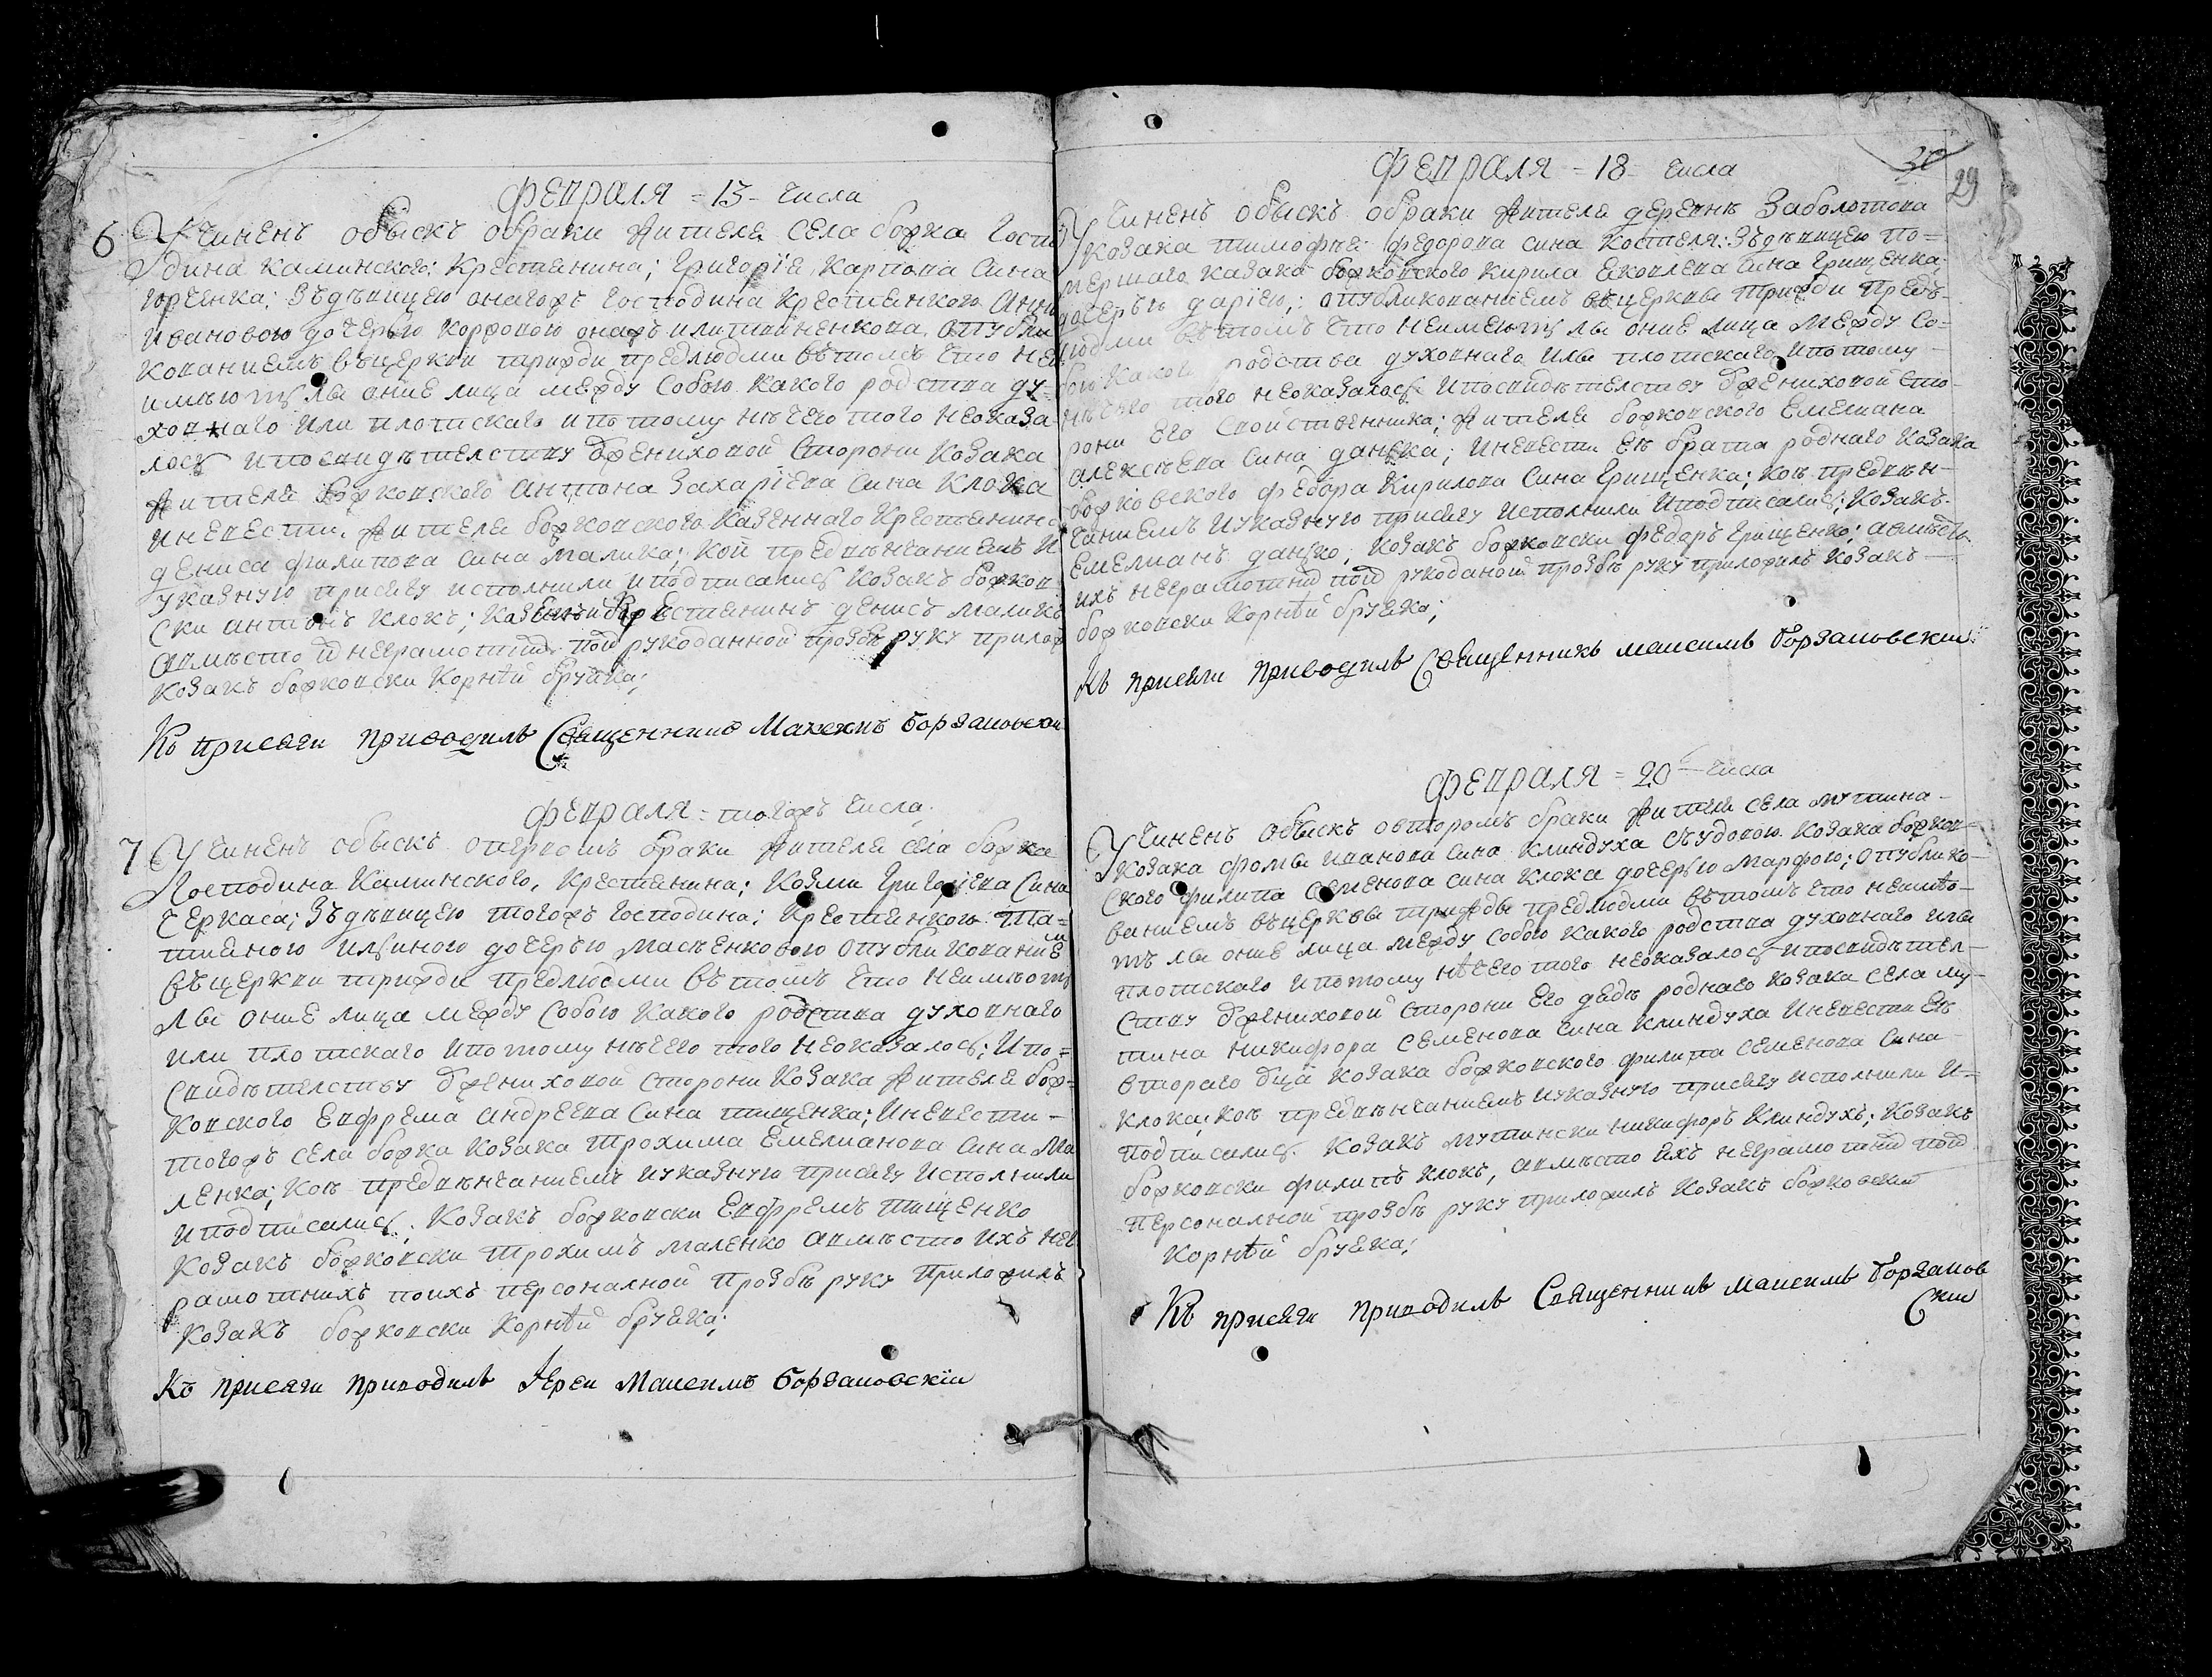 Февраля = 13 - числа
6 Учиненъ обыскъ обраки жителя села божка Госпо
дина каминского: крестянина; григорїя карпова сина
горченка; зъдѣвицею онагожъ господина крестянского анни
ивановою дочерью опубли
кованиемъ въцеркви трижди предлюдми вътомъ что не
имѣютъ лы оние лица между собою какого родства ду-
ховнаго или плотскаго ипотому нѣчего того неоказа
лось ипосвидѣтелству бжениховой сторони козака
жителя божковского антона захарїева сина клока
иневести. жителя божковского казенного крестянина
дениса филипова сина малика; кои предвѣнчаниемъ и
указную присягу исполнили иподписалис козакъ божков
ски антонъ клокъ; денисъ маликъ
авмѣсто неграмотних под рукоданной прозбѣ руку прилож
козакъ божковски корнѣй бруяка;
Къ присяги приводилъ священникъ Максимъ Борзаковски
Февраля = тогожъ числа
7 Учиненъ обыскъ опервомъ браки жителя села божка
Господина Каминского, крестянина; козми григорїева сина
черкаса; зъдѣвицею тогожъ господина; крестянкого та=
тияного дочерью масѣенковою опубликование
въцеркви трижди предлюдми вътомъ что неимѣютъ
лы оние лица между собою какого родства духовнаго
или плотскаго ипотому нѣчего того неоказалось; ипо=
свидѣтелству бжениховой сторони козака жителя бож=
ковского евфрема андреева сина тищенка; иневести -
тогожъ села божка козака трохима емелианова сина ма
ленка; коѣ предвѣнчаниемъ иуказную присягу исполнили
иподписалис. козакъ божковски евфремъ тищенко
козакъ божковски трохимъ маленко авмѣсто ихъ нег
рамотнихъ поихъ персоналной прозбѣ руку приложилъ
козакъ божковски корнѣй бруяка;
Къ присяги приводилъ Iереи Максимъ Борзаковскїи
30
29
Февраля = 18 - числа
Учиненъ обыскъ обраки жителя деревнѣ заболотова
козака тимофѣя федорова сина костеля: зъдѣвицею по=
мершаго казака божковского кирила яковлева сина грищенка;
дочерью дарїею; опубликованиемъ въцерквы трижди предъ-
людми вътомъ что неимеютъ лы оние лица между со=
бою какого родства духовнаго илы плотскаго ипотому -
нѣчего того неоказалось ипосвидѣтелству бжениховой сто-
рони его свойственника; жителя божковского емелиана
алексѣева сина данька; иневести еѣ брата роднаго козака
божковского федора кирилова сина грищенка; коѣ предвѣн-
чаниемъ иуказную присягу исполнили иподписалис; козакъ-
емелианъ данько, козакъ божковски федаръ грищенко; авмѣсто
ихъ неграмотних под рукоданой прозбѣ руку приложилъ козакъ -
божковски корнѣй бруяка;
Къ присяги приводилъ священникъ максимъ Борзаковскии
Февраля = 20 - числа
Учиненъ обыскъ овторомъ браки жителя села мутина -
козака фомы иванова сина клиндуха съудовою козака божков=
ского филипа семенова сина клока дочерью марфою; опублико-
ваниемъ въцерквы трижды предлюдми вътомъ что неимѣю-
тъ лы оние лица между собою какого родства духовнаго илы
плотскаго ипотому нѣчего того неоказалось ипосвидѣтел-
ству бжениховой сторони его дядѣ роднаго козака села му-
тина никифора семенова сина клиндуха иневести еѣ
втораго козака божковского филипа семенова сина -
клока; коѣ предвѣнчаниемъ иуказную присягу исполнили и=
подписалис. козакъ мутински никифоръ клиндухъ; козакъ
божковски филипъ клокъ, авмѣсто ихъ неграмотних под
персоналной прозбѣ руку приложилъ козакъ божковскии
корнѣй бруяка;
Къ присяги приводилъ священникъ максимъ Борзаков
скии